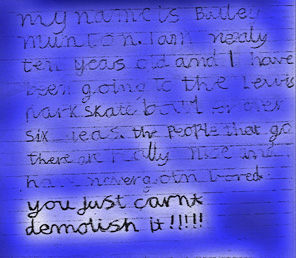 my name is Bailey
munton. I am nearly
ten years old and I have
been going to the Lewis
park skate bowl for over
six years. the people that go
there are really nice and
have never gotn bored
you just carnt
demolish it!!!!!